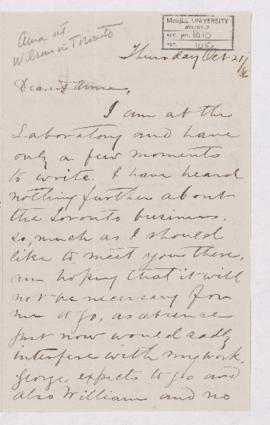 Anna at
Wilsons in Toronto
McGILL UNIVERSITY
ARCHIVES
ACC. NO. 1010
REF.
Thursday Oct 21/
Dearest Anna,
I am at the
Laboratory and have
only a few moments
to write. I have heard
nothing further about
the Toronto business.
So, much as I should
like to meet you there,
am hoping that it will
not be necessary for
me to go, as absence
just now would sadly
interfere with my work.
George expects to go and
also William and no